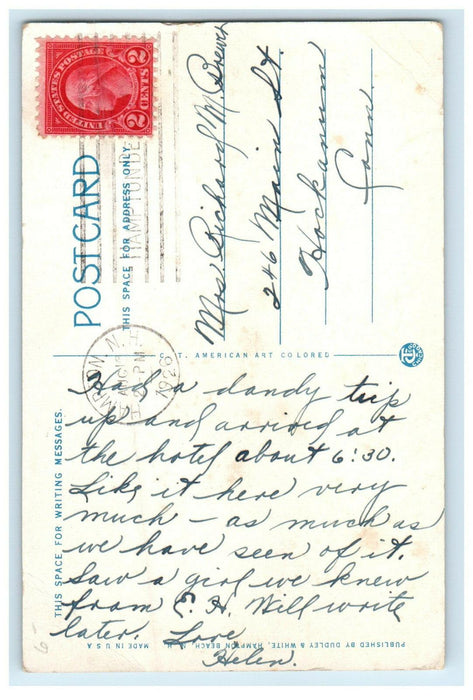 UNITED STATES POSTAGE
2 CENTS 2
POSTCARD
THIS SPACE FOR ADDRESS ONLY
HAMPTON BE
Mrs Richard M. Brewer
246 Main St.
Hockanum
Conn.
C.T. AMERICAN ART COLORED
HAMPTON, N.H.
AUG
PM
1926
THIS SPACE FOR WRITING MESSAGES.
Had a dandy trip
up and arrived at
the hotel about 6:30.
Like it here very
much - as much as
we have seen of it.
Saw a girl we knew
from E. H. Will write
later. Love
Helen.
PUBLISHED BY DUDLEY & WHITE, HAMPTON BEACH, N. H.
MADE IN U.S.A